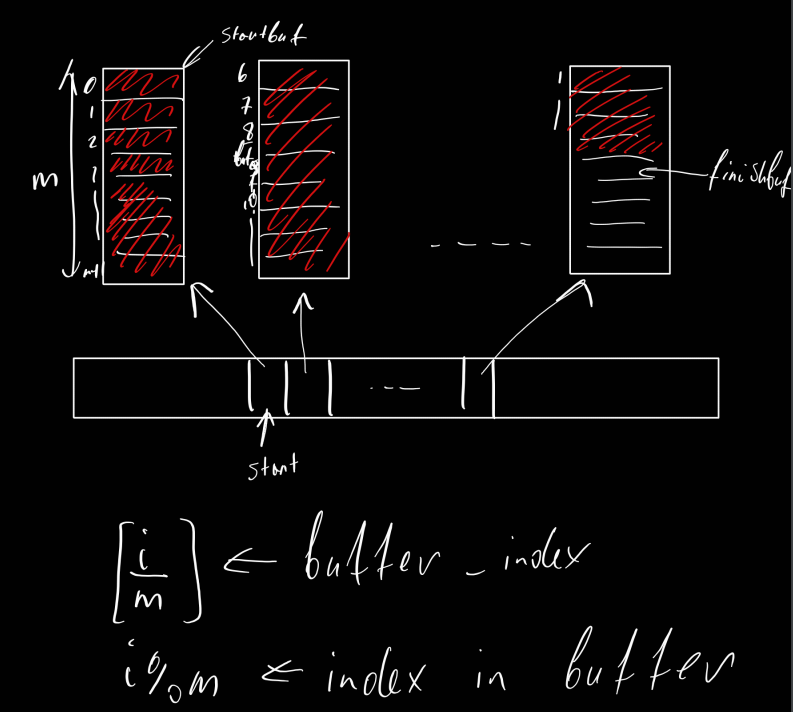 startbuf
0
1
2
m
m-1
6
7
8
i
finishbuf
start
[i/m] ← buffer_index
i%m ← index in buffer